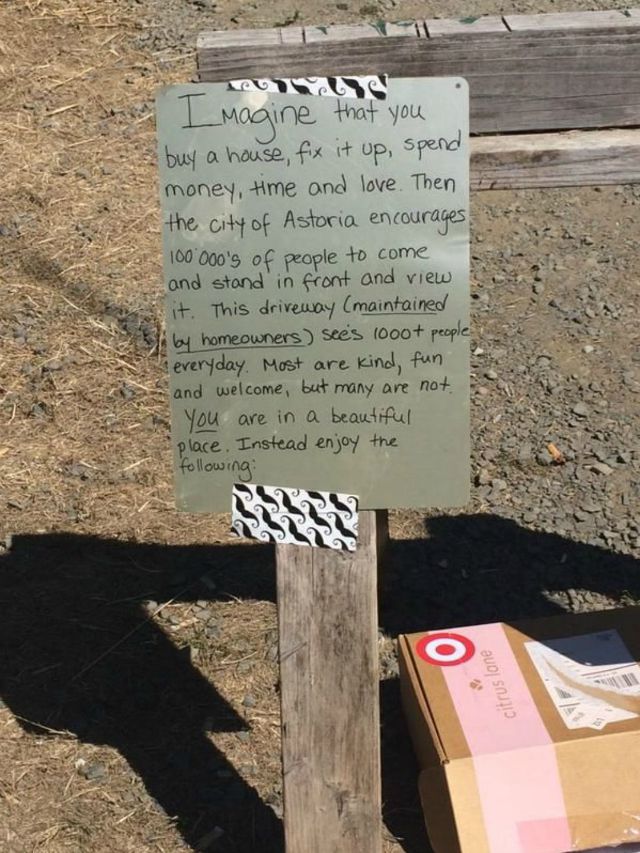 Imagine that you
buy a house, fix it up, spend
money, time and love. Then
the city of Astoria encourages
100 000's of people to come
and stand in front and view
it. This driveway (maintained
by homeowners) see's 1000+ people
everyday. Most are kind, fun
and welcome, but many are not.
You are in a beautiful
place. Instead enjoy the
following:
citrus lane